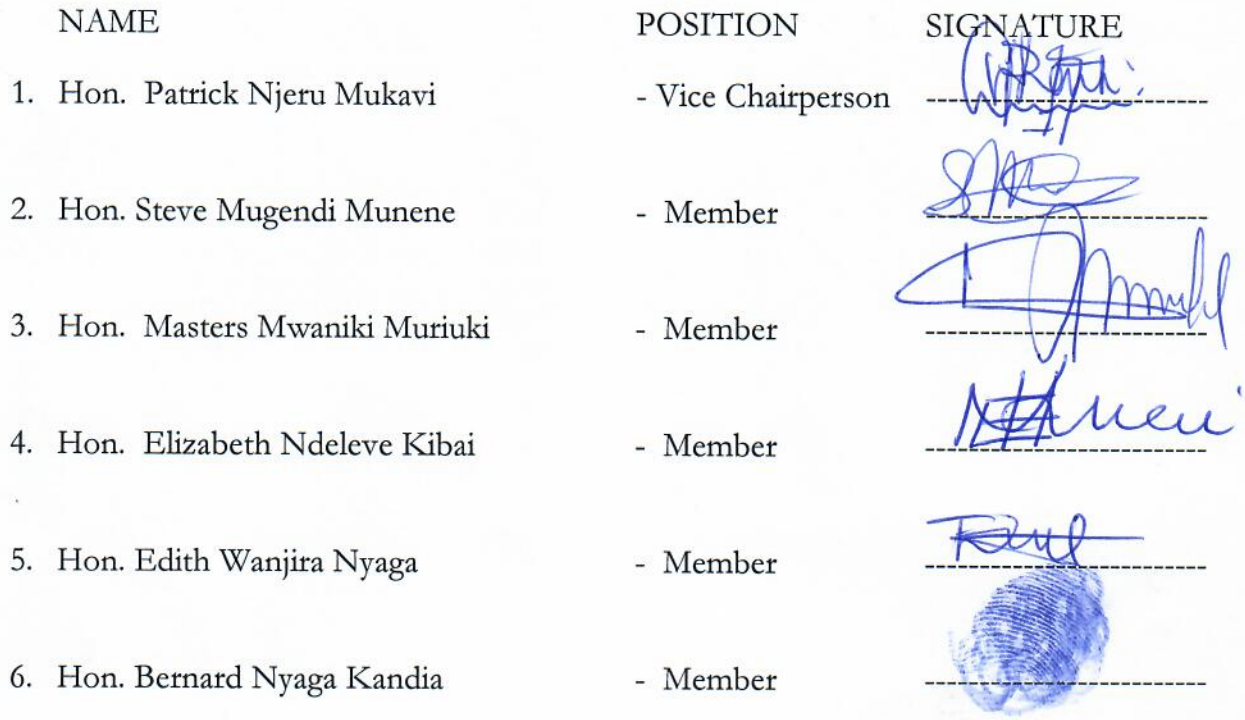 NAME POSITION SIGNATURE
1. Hon. Patrick Njeru Mukavi - Vice Chairperson
2. Hon. Steve Mugendi Munene - Member
3. Hon. Masters Mwaniki Muriuki - Member
4. Hon. Elizabeth Ndeleve Kibai - Member
5. Hon. Edith Wanjira Nyaga - Member
6. Hon. Bernard Nyaga Kandia - Member